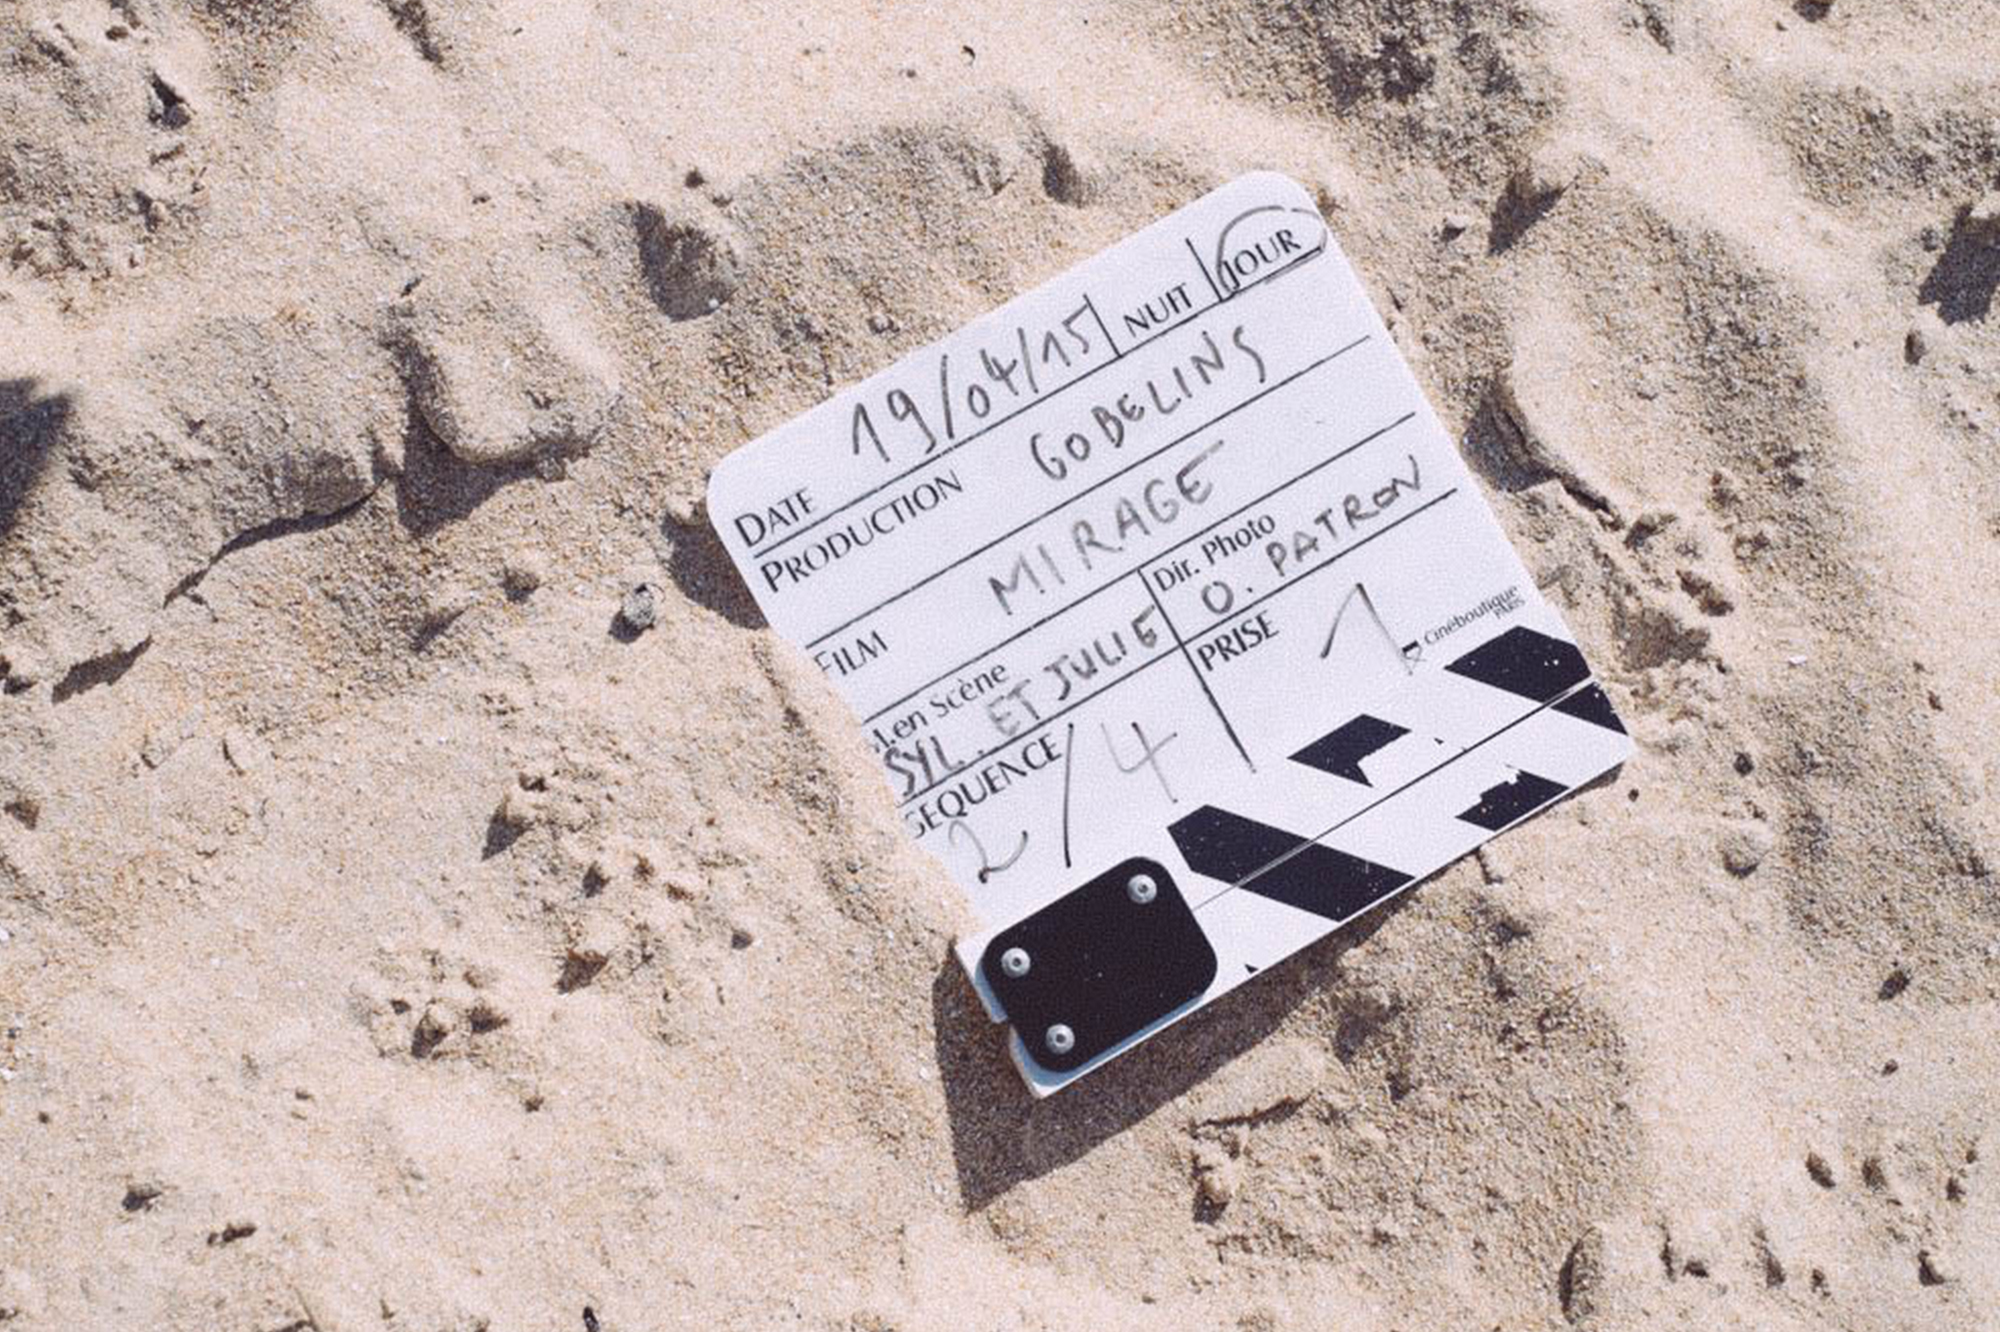 DATE 19/04/15 NUIT JOUR
PRODUCTION GOBELINS
FILM MIRAGE
M.en Scène SYL. ET JULIE
Dir. Photo O. PATRON
SEQUENCE 2/4
PRISE 1
Cinéboutique
PARIS